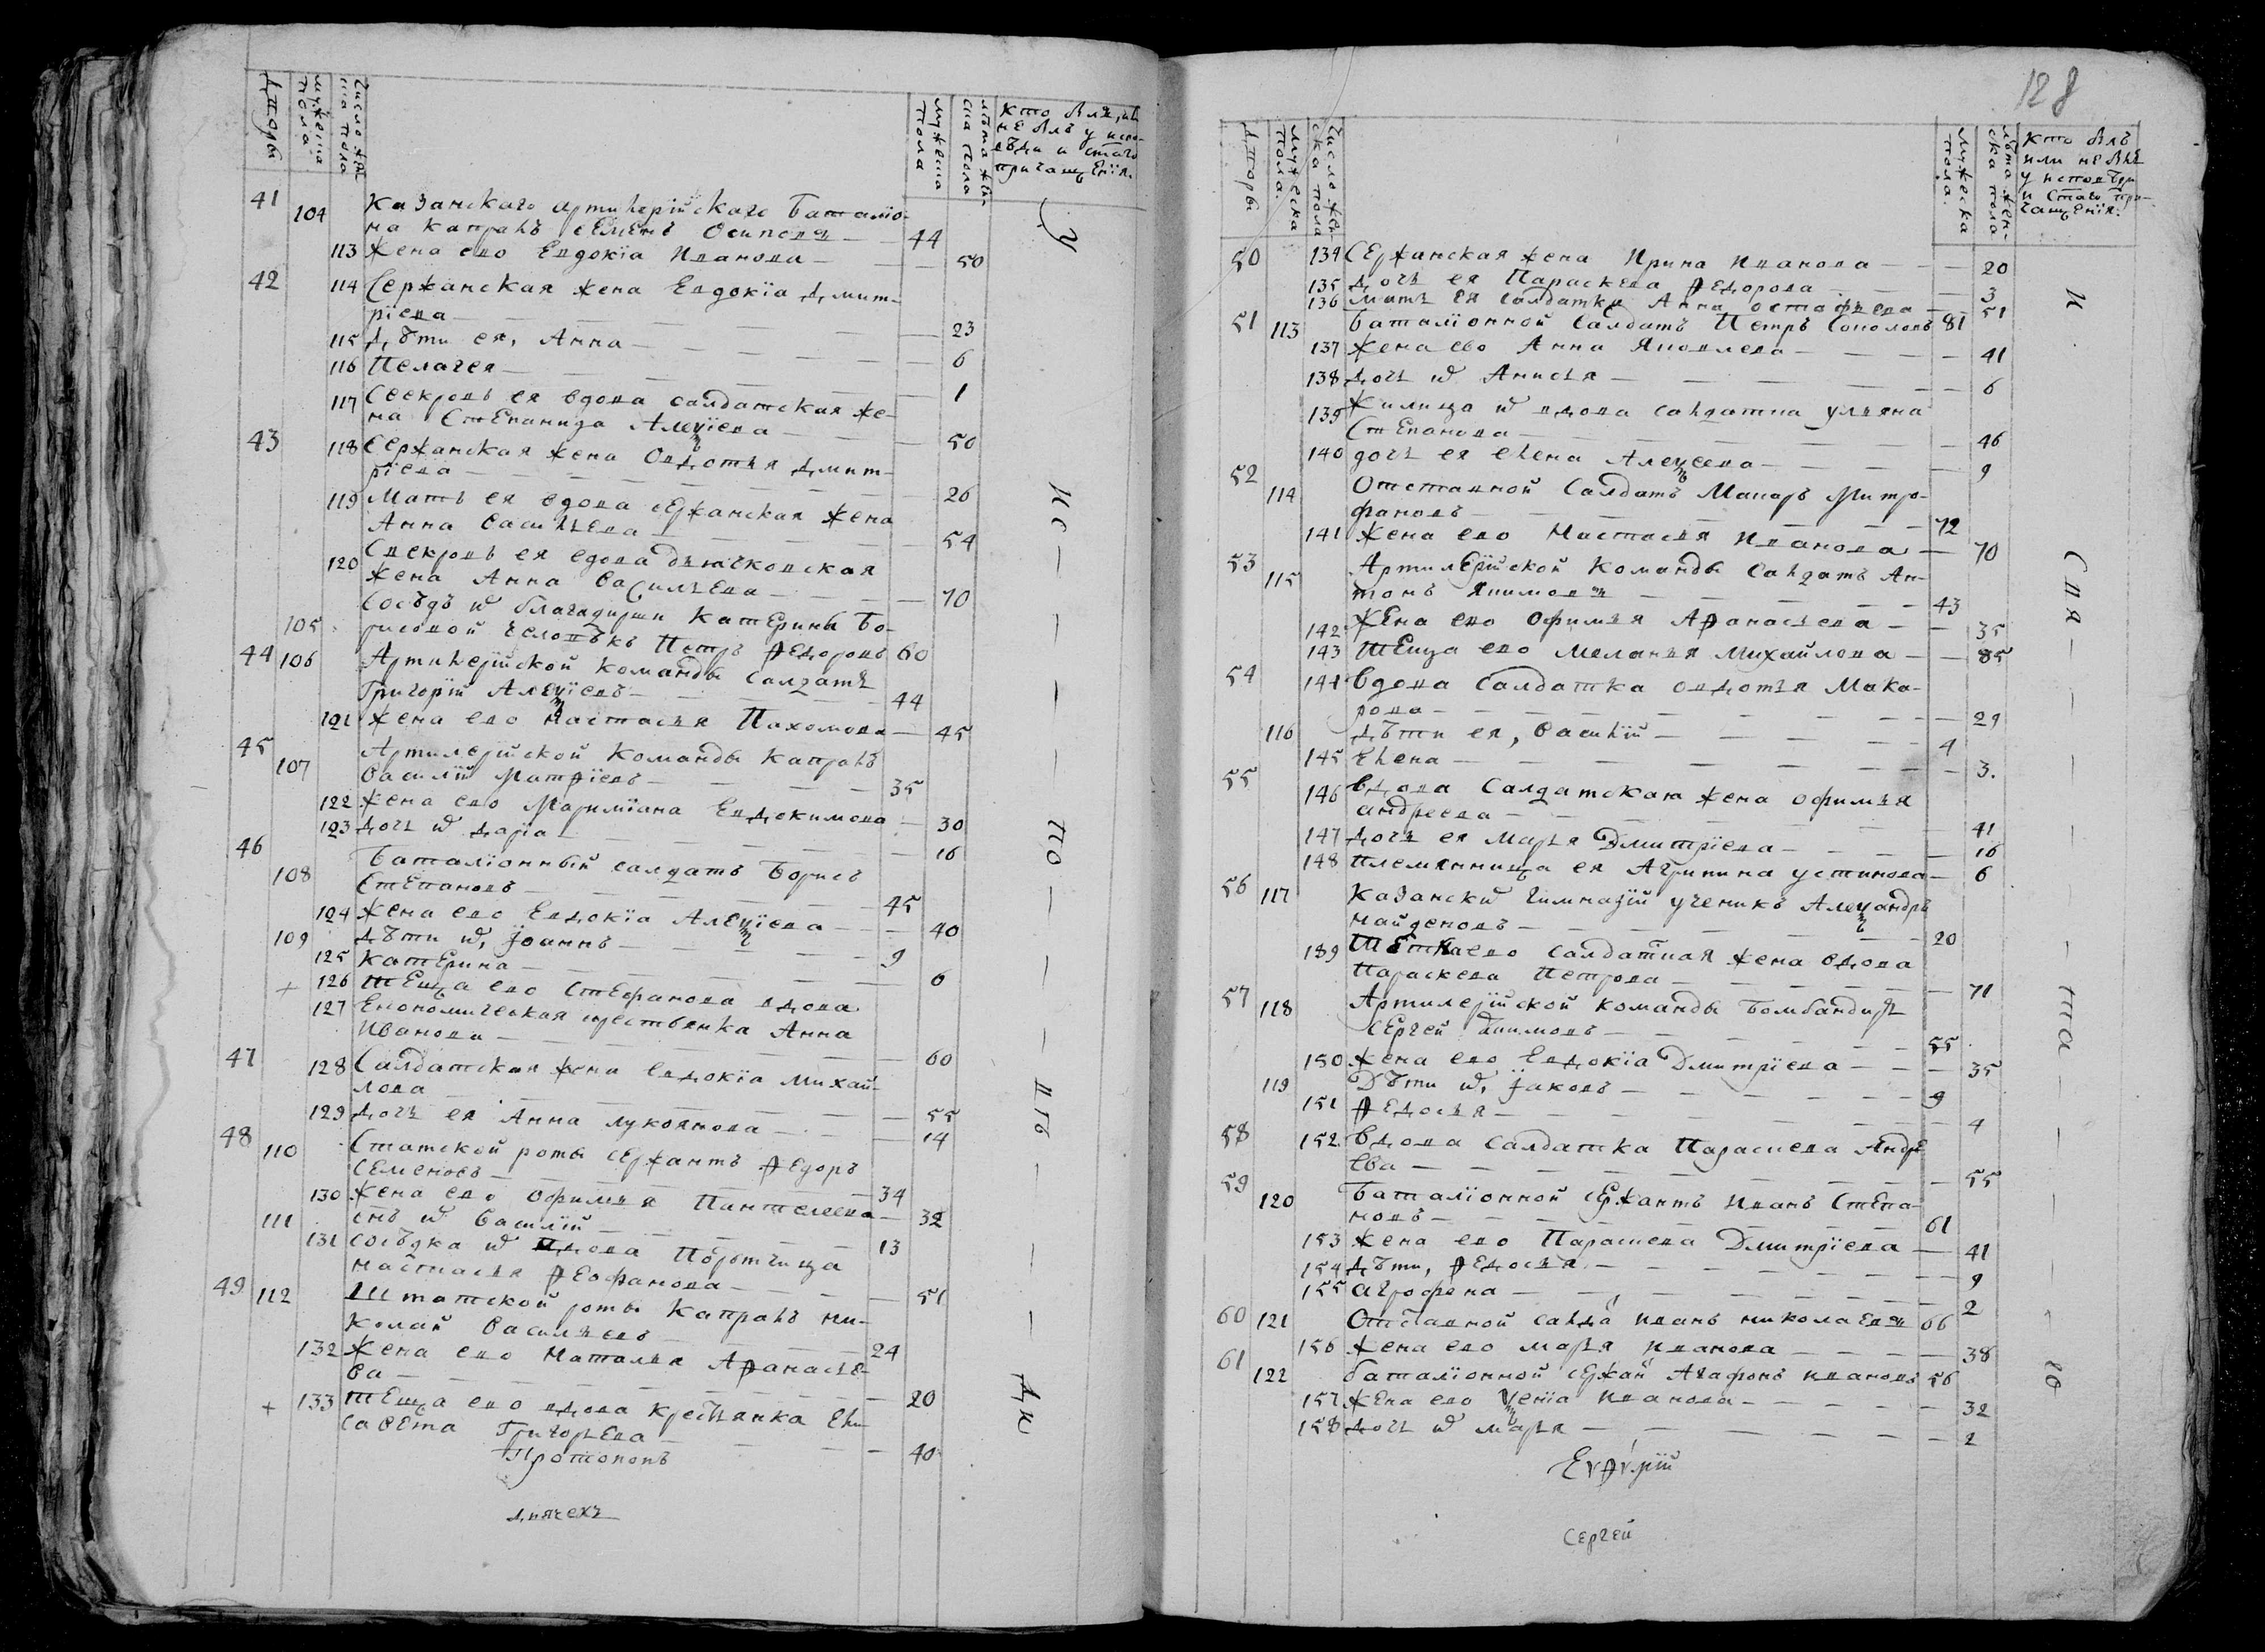 Дворы
мужеска пола
число женска пола
мужеска пола
лѣта женска пола
Кто былъ, или
не былъ у испо-
вѣди и стаго
причащенїя.
41 104 Казанскаго артилерїйскаго баталїо-
на капралъ Семенъ Осиповъ — 44
113 жена ево Евдокїа Иванова — 50
42 114 Сержанская жена Евдокїа Дмит-
рїева — 23
115 Дѣти ея, Анна — 6
116 Пелагея — 1
117 Свекровь ея вдова салдатская же-
на Степанида Алеѯїева — 50
43 118 Сержанская жена Овдотья Дмит-
рїева — 26
119 Мать ея вдова сержанская жена
Анна Васильева — 54
120 Свекровь ея вдова дьячковская
жена Анна Васильева — 70
Сосѣдъ ѿ Катерины Бо-
105 рисовой человѣкъ Петръ Ѳедоровъ 60
44 106 Артилерїйской команды салдатъ
Григорїй Алеѯїевъ — 44
121 жена ево Настасья Пахомова — 45
45 107 Артилерїйской команды капралъ
Василїй Матѳїевъ — 35
122 жена ево Маримїана Евдокимова — 30
123 дочь ѿ Дарїа — 16
46 108 Баталїонный салдатъ Борисъ
Степановъ — 45
124 жена ево Евдокїа Алеѯїева — 40
109 дѣти ѿ, Іоаннъ — 9
125 Катерина — 6
+ 126 Теща ево Стефанова вдова
127 Економическая крестьянка Анна
Иванова — 60
47 128 Салдатская жена Евдокїа Михай-
лова — 55
129 дочь ея Анна Лукоянова — 14
48 110 Статской роты сержантъ Ѳедоръ
Семеновъ — 34
130 жена ево Офимья Пантелеева — 32
111 снъ ѿ Василїй — 13
131 сосѣдка ѿ вдова Портнища
Настасья Ѳеофанова — 51
49 112 Штатской роты капралъ Ни-
колай Васильевъ — 24
132 жена ево Наталья Аѳанасье-
ва — 20
+ 133 Теща ево вдова крестьянка Ели-
савета Григорьева — 40
Протопопъ
дьячекъ
У — Ис — по — вѣ — ди
128
Дворы
мужеска пола
число женска пола
мужеска пола
лѣта женска пола
Кто былъ
или не былъ
у исповѣди
и стаго при-
чащенїя.
50 134 Сержанская жена Ирина Иванова — 20
135 дочь ея Параскева Ѳедорова — 3
136 мать ея салдатка Анна Остафьева — 51
51 113 Баталїонной салдатъ Петръ Соколовъ 81
137 жена ево Анна Яковлева — 41
138 дочь ѿ Анисья — 6
139 Жилица ѿ вдова салдатка Ульяна
Степанова — 46
140 дочь ея Елена Алеѯеева — 9
52 114 Отставной салдатъ Макаръ Митро-
фановъ — 72
141 жена ево Настасья Иванова — 70
53 115 Артилерїйской команды салдатъ Ан-
тонъ Якимовъ — 43
142 жена ево Офимья Аѳанасьева — 35
143 Теща ево Меланья Михайлова — 85
54 144 Вдова салдатка Овдотья Мака-
рова — 29
116 дѣти ея, Василїй — 4
145 Елена — 3.
55 146 Вдова салдатская жена Офимья
Андреева — 41
147 дочь ея Марья Дмитрїева — 16
148 племянница ея Агрипина Устинова — 6
56 117 Казанской гимназїи ученикъ Алеѯандръ
Найденовъ — 20
189 Тетка ево салдатская жена вдова
Параскева Петрова — 71
57 118 Артилерїйской команды бомбандиръ
Сергей Якимовъ — 55
150 жена ево Евдокїа Дмитрїева — 35
119 Дѣти ѿ, Іаковъ — 9
151 Ѳедосья — 4
58 152 Вдова салдатка Параскева Андре
ева — 55
59 120 Баталїонной сержантъ Иванъ Степа-
новъ — 61
153 жена ево Параскева Дмитрїева — 41
154 дѣти, Ѳедосья — 9
155 Агрофена — 2
60 121 Отставной салда Иванъ Николаевъ 66
156 жена ево Марья Иванова — 38
61 122 баталїонной сержан Агафонъ Ивановъ 56
157 жена ево Ѯенїа Иванова — 32
158 дочь ѿ Марья — 2
Сергей
и — свя — та — го